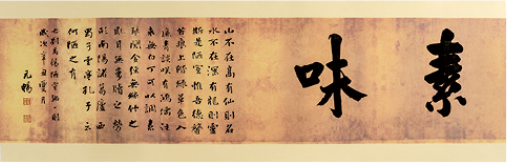 素味
山不在高有仙則名
水不在深有龍則靈
斯是陋室惟吾德馨
苔痕上階綠草色入
簾青談笑有鴻儒往
來無白丁可以調素
琴閱金經無絲竹之
亂耳無案牘之勞
形南陽諸葛廬西
蜀子雲亭孔子云
何陋之有
劉禹錫陋室銘
歲次
元暢